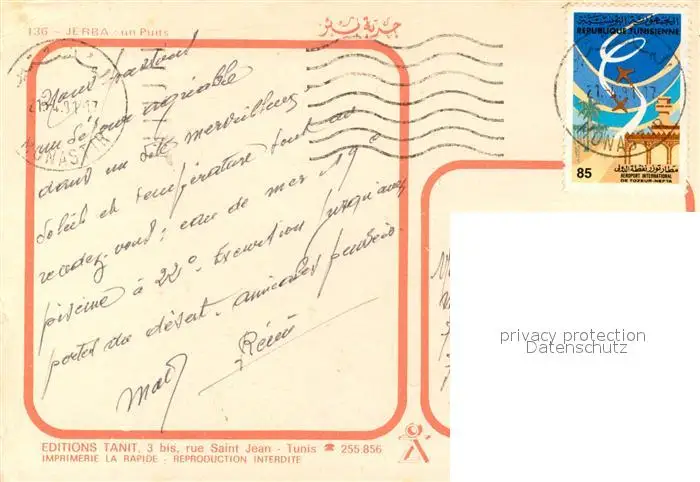 136 - JERBA : un Puits
جربة بئر
Nous passons
un séjour agréable
dans un site merveilleux
Soleil et température sont au
rendez-vous : eau de mer 19°
piscine à 22°. Excursion jusqu'aux
portes du désert. amicales pensées.
Rémi
MONASTIR
REPUBLIQUE TUNISIENNE
مطار توزر نفطة الدولي
AEROPORT INTERNATIONAL
DE TOZEUR-NEFTA
85
privacy protection
Datenschutz
EDITIONS TANIT, 3 bis, rue Saint Jean - Tunis ☎ 255.856
IMPRIMERIE LA RAPIDE - REPRODUCTION INTERDITE